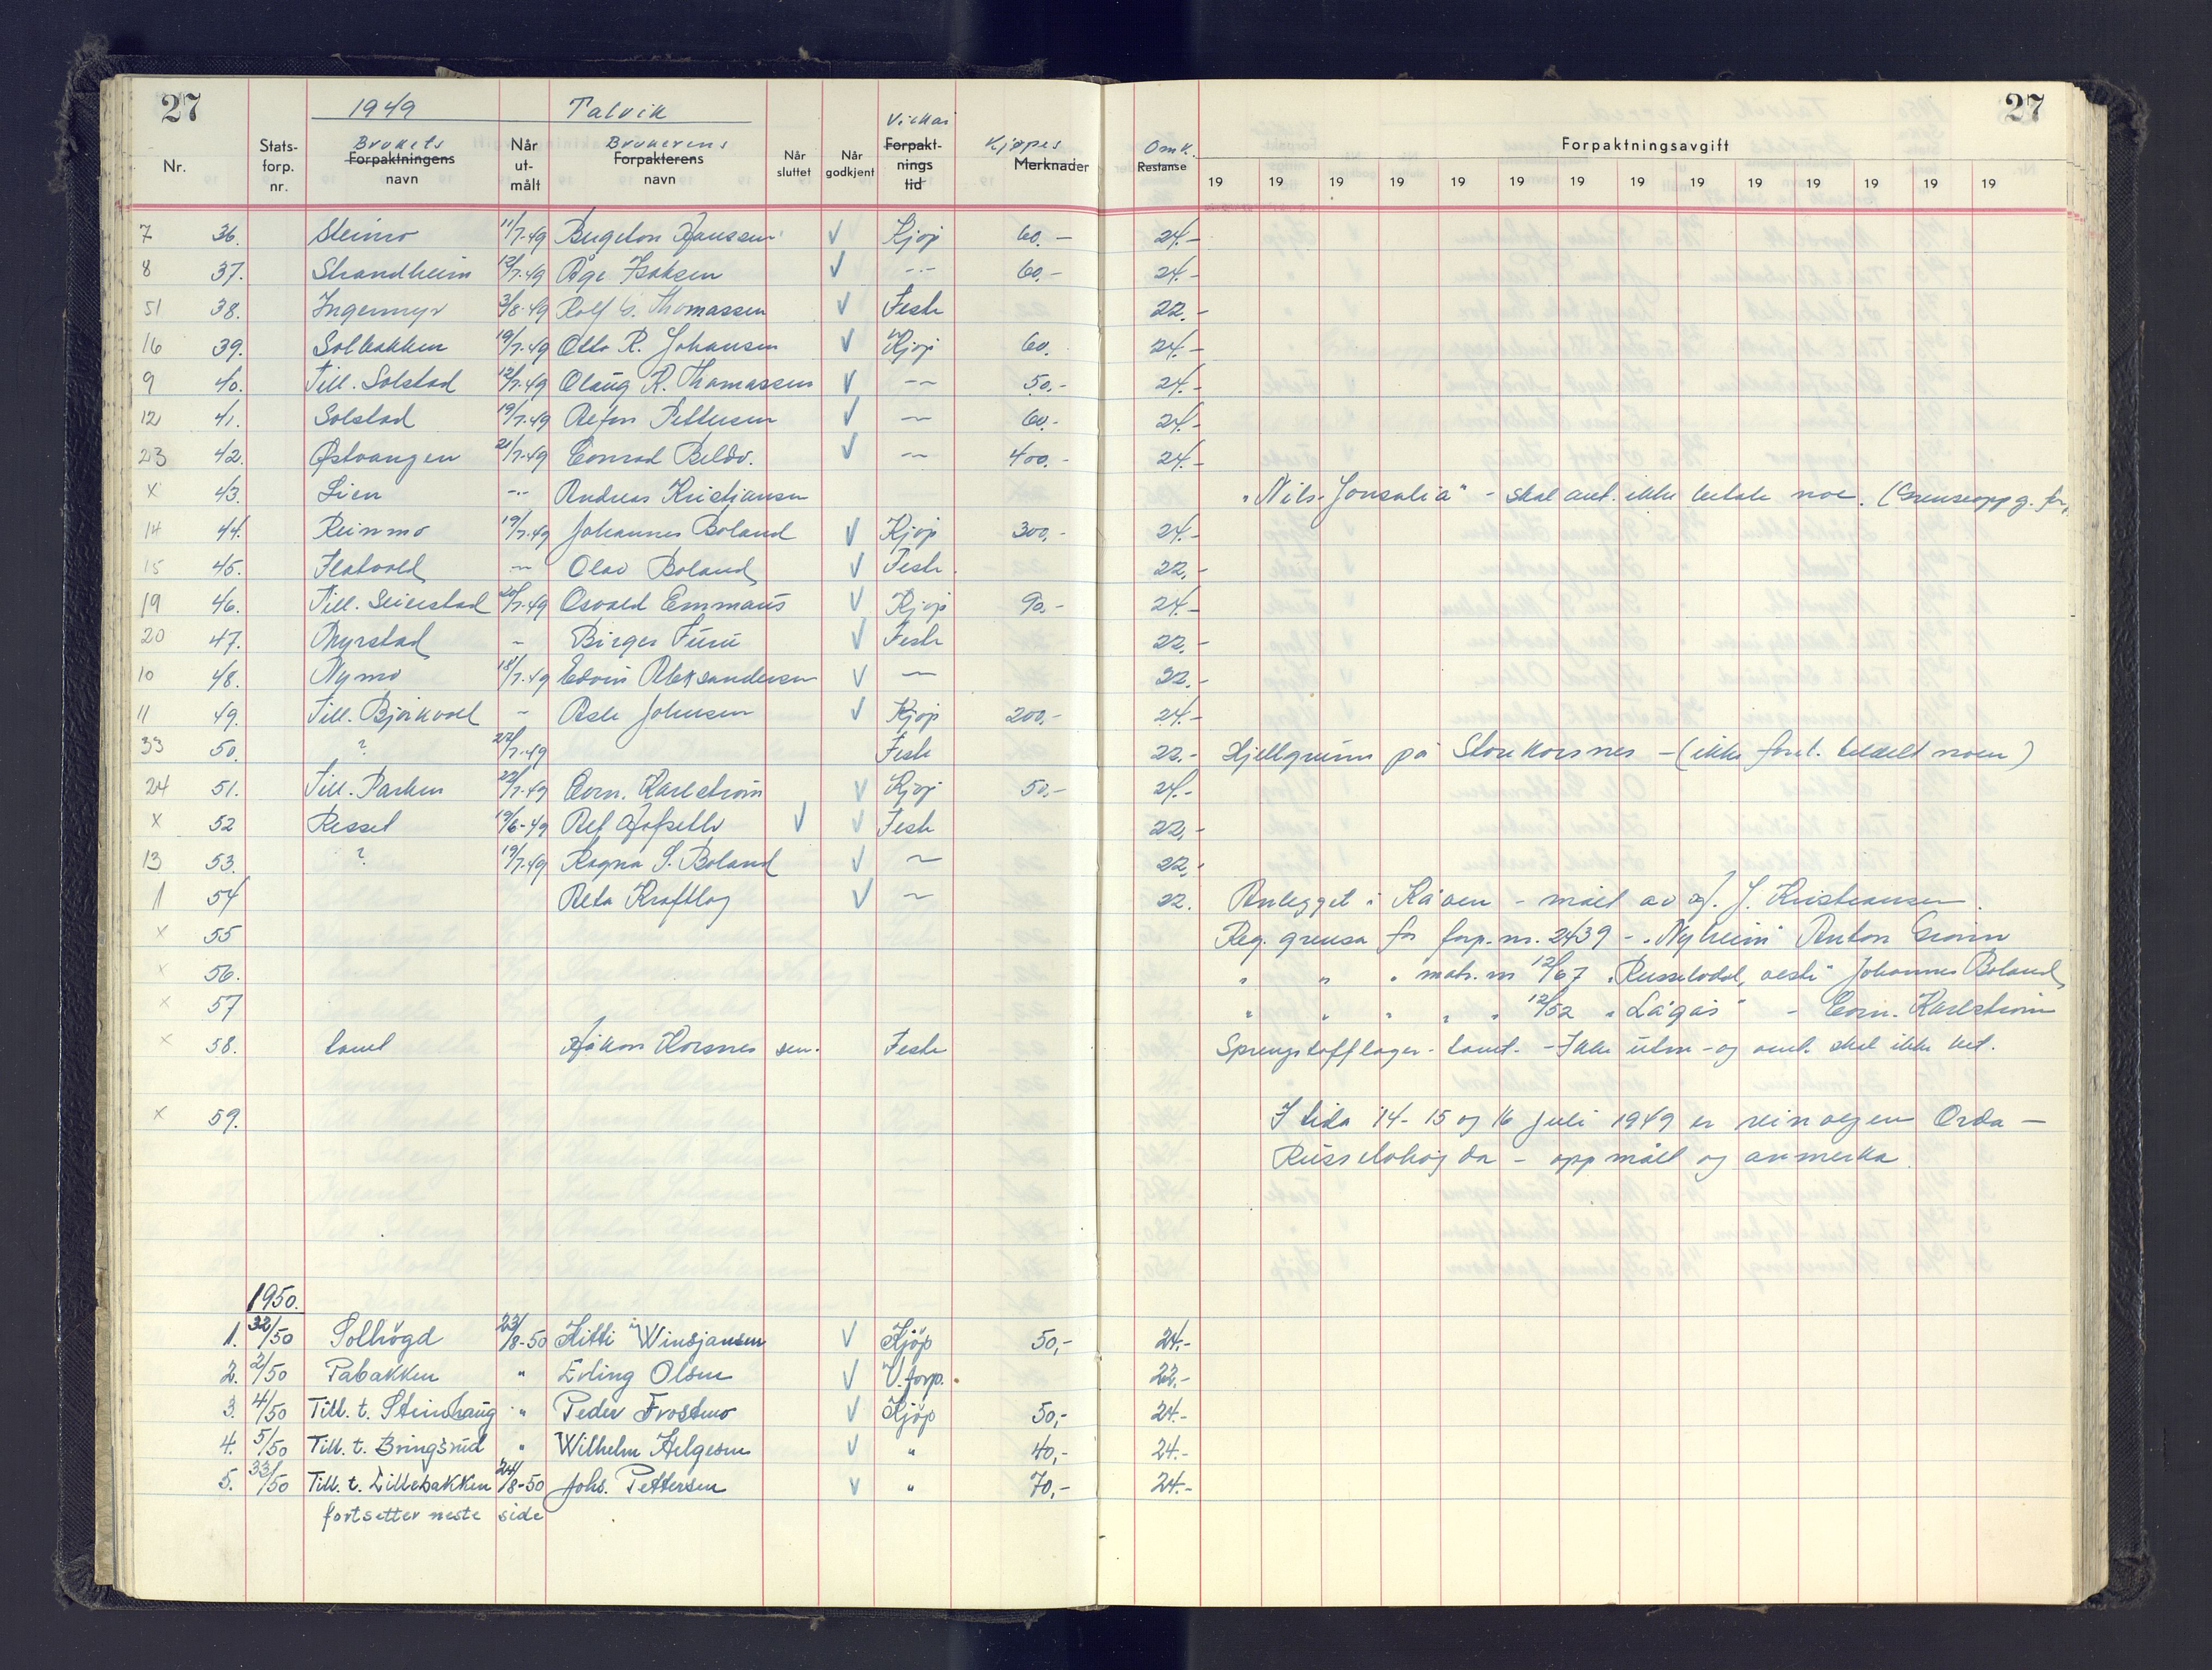 27 1949 Talvik 27
Nr. Stats-forp. nr. Brukets Forpaktningens navn Når ut-målt Brukerens Forpakterens navn Når sluttet Når godkjent Vilkår Forpakt-nings tid Kjøpes Merknader Omk. Restanse Forpaktningsavgift
19 19 19 19 19 19 19 19 19 19 19 19 19 19
7 36. Steinmo 11/7-49 Hanssen V Kjøp 60.- 24.-
8 37. Strandheim 12/7-49 Åge Isaksen V -"- 60.- 24.-
51 38. Ingermyr 3/8-49 Rolf C. Thomassen V Feste 22.-
16 39. Solbakken 19/7-49 Otto R. Johansen V Kjøp 60. 24.-
9 40. Till. Solstad 12/7-49 Olaug R. Thomassen V -"- 50.- 24.-
12 41. Solstad 19/7-49 Pettersen V -"- 60.- 24.-
23 42. Østvangen 21/7-49 Conrad Beldo. V -"- 400.- 24.-
X 43. Lien -"- Andreas Kristiansen "Nils-Jonsalia" - skal ant. ikke betale noe. (Grenseoppg. for
14 44. Reinmo 19/7-49 Johannes Boland V Kjøp 300.- 24.-
15 45. Flatvold -"- Olav Boland V Feste. 22.-
19 46. Till. Seierstad 20/7-49 Osvald Emmaus V Kjøp 90.- 24.-
20 47. Myrstad - Birger Furu V Feste 22.-
10 48. Nymo 18/7-49 Edvin Aleksandersen V -"- 22.-
11 49. Till. Bjørkvoll - Asle Johnsen V Kjøp 200.- 24.-
33 50. ? 22/7-49 Feste 22.- Fjellgrunn på Store Korsnes - (ikke forel. tildelt noen)
24 51. Till. Parken 22/7-49 Corn. Karlstrøm V Kjøp 50.- 24.-
X 52 Resset 19/6-49 Alf Hofseth V V Feste 22.-
13 53. ? 19/7-49 Ragna S. Boland V -"- 22.-
1 54 Alta Kraftlag V -"- 22. Anlegget i Kåven - målt av H. J. Kristiansen.
X 55 Reg. grensa for forp. nr. 2439 - "Nyheim" Anton
X 56. " " " matr. nr 12/67 "Russelvdal, vesti" Johannes Boland
X 57 " " " " " 12/52 "Lågås" - Corn. Karlstrøm
X 58. tomt Håkon Korsnes sen. Feste Sprengstofflager-tomt. - Ikke utm - og ant. skal ikke bet.
X 59. I tida 14-15 og 16 juli 1949 er reinveien Orda -
Russelvhøgda - oppmålt og anmerka
1950.
1. 32/50 Solhögd 23/8-50 Kitti Winsjansen V Kjöp 50,- 24.-
2. 2/50 Pabakken " Erling Olsen V V. forp. 22.-
3. 4/50 Till. t. Steinhaug " Peder Frostmo V Kjöp 50,- 24.-
4. 5/50 Till. t. Bringsrud " Wilhelm Helgesen V " 40,- 24.-
5. 33/50 Till. t. Lillebakken 24/8-50 Johs. Pettersen V " 70,- 24.-
fortsetter neste side